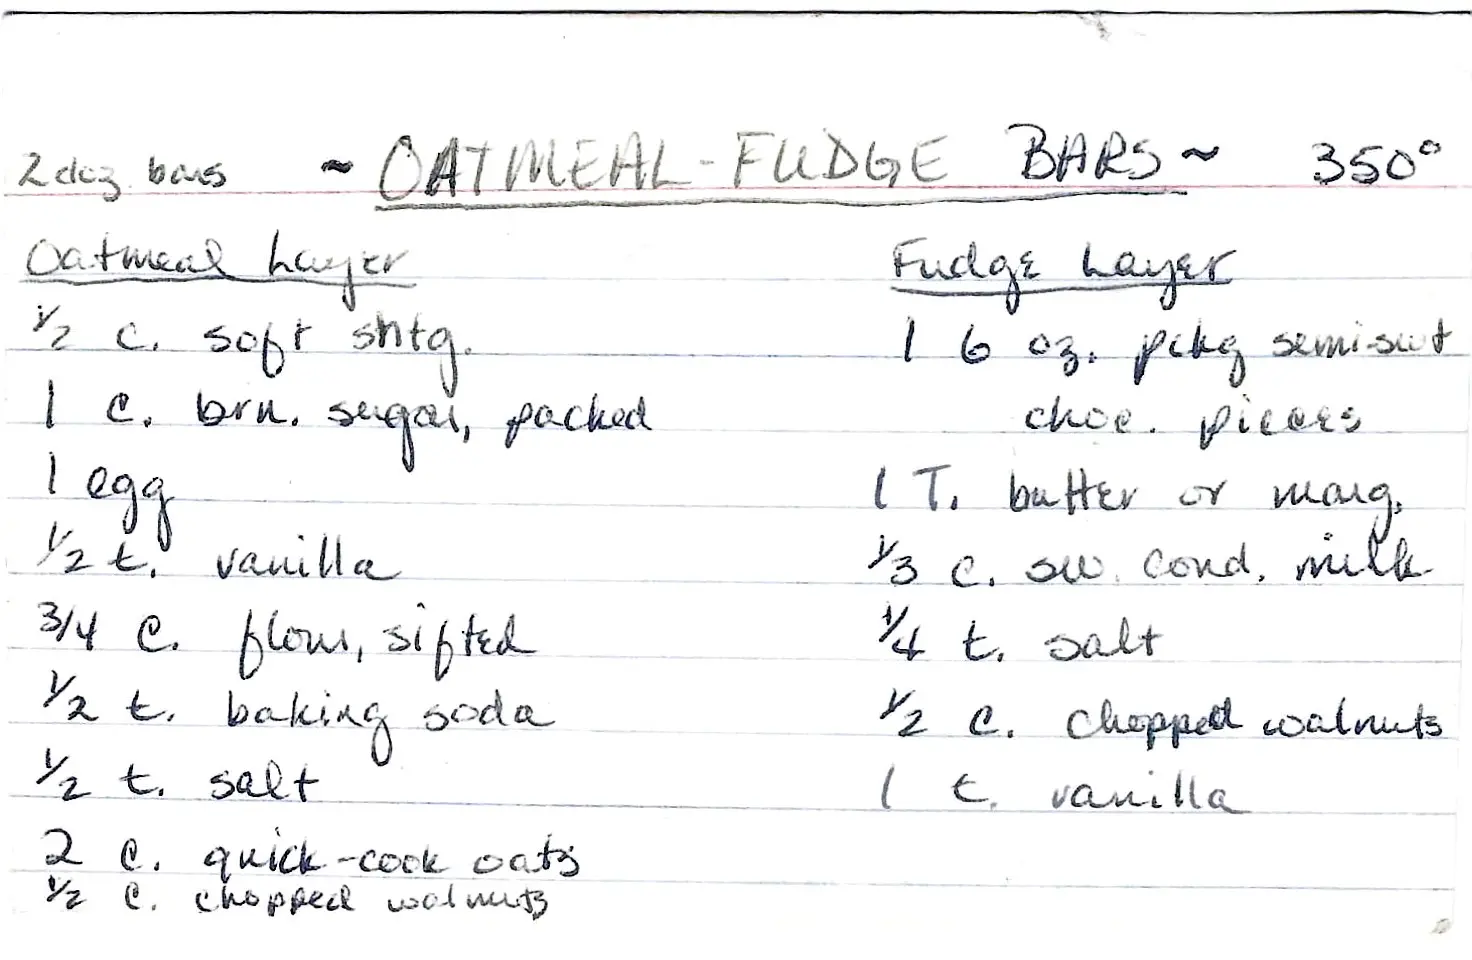 2 doz bars ~ OATMEAL-FUDGE BARS ~ 350°
Oatmeal Layer
1/2 c. soft shtg.
1 c. brn. sugar, packed
1 egg
1/2 t. vanilla
3/4 c. flour, sifted
1/2 t. baking soda
1/2 t. salt
2 c. quick-cook oats
1/2 c. chopped walnuts
Fudge Layer
1 6 oz. pckg semi-swt
choc. pieces
1 T. butter or marg.
1/3 c. sw. cond. milk
1/4 t. salt
1/2 c. chopped walnuts
1 t. vanilla